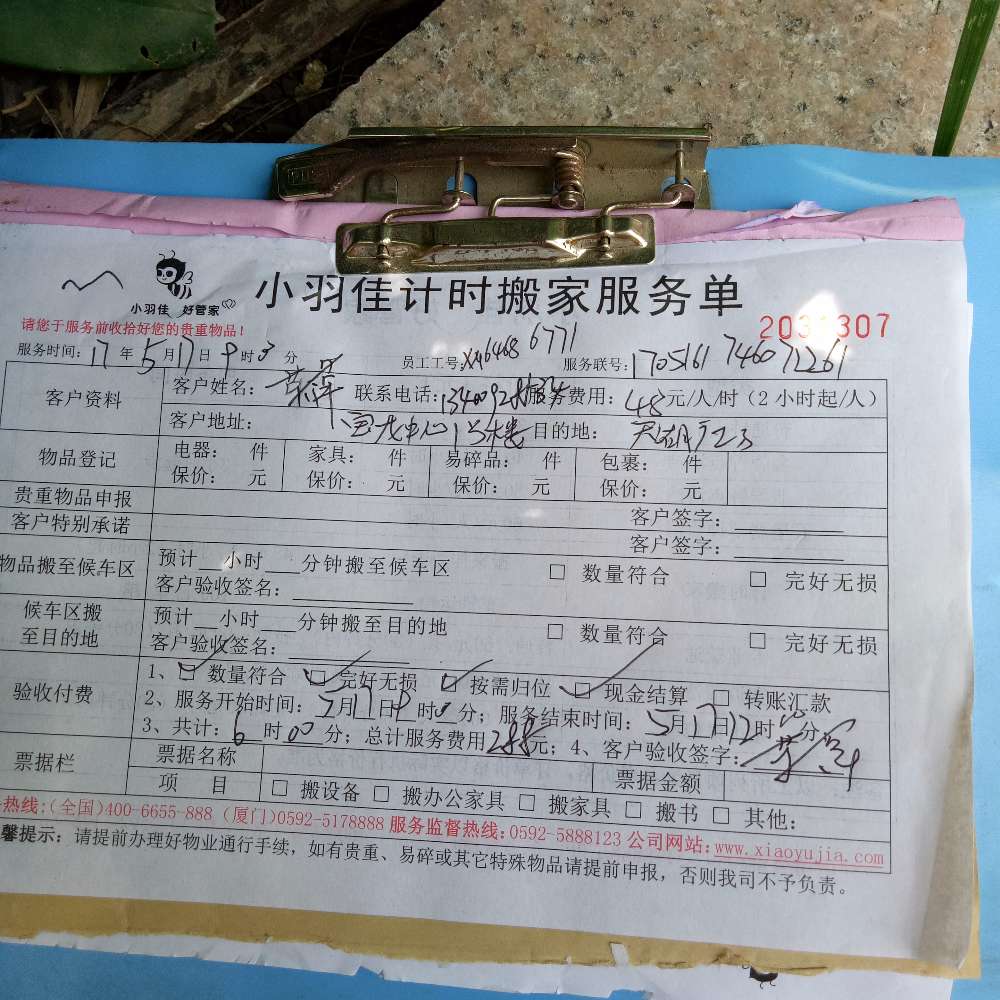 小羽佳计时搬家服务单
小羽佳 好管家
请您于服务前收拾好您的贵重物品！
服务时间：17年5月17日9时 分 员工工号: 6468 6771 服务联号: 1705161 746071261
客户资料 客户姓名： 联系电话: 服务费用：48元/人/时（2小时起/人）
客户地址： 宝龙中心1号楼 目的地：
物品登记 电器： 件 家具： 件 易碎品： 件 包裹： 件
保价： 元 保价： 元 保价： 元 保价： 元
贵重物品申报 客户签字：
客户特别承诺 客户签字：
物品搬至候车区 预计__小时___分钟搬至候车区 □ 数量符合 □ 完好无损
客户验收签名：
候车区搬至目的地 预计__小时___分钟搬至目的地 □ 数量符合 □ 完好无损
客户验收签名：
验收付费 1、□ 数量符合 □ 完好无损 □ 按需归位 □ 现金结算 □ 转账汇款
2、服务开始时间：5月17日9时 分；服务结束时间：5月17日12时 分
3、共计：6时00分；总计服务费用288元；4、客户验收签字：
票据栏 票据名称 票据金额
项 目 □ 搬设备 □ 搬办公家具 □ 搬家具 □ 搬书 □ 其他：
热线:(全国)400-6655-888 (厦门)0592-5178888 服务监督热线:0592-5888123 公司网站:www.xiaoyujia.com
馨提示：请提前办理好物业通行手续，如有贵重、易碎或其它特殊物品请提前申报，否则我司不予负责。